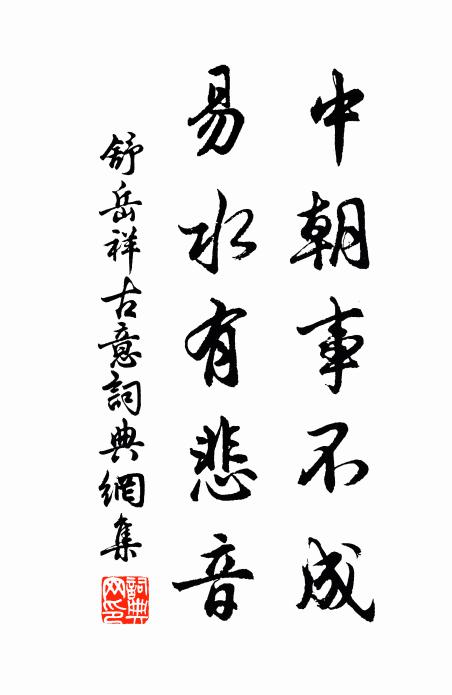 中朝事不成
易水有悲音
舒岳祥古意詞典網集
詞典網印